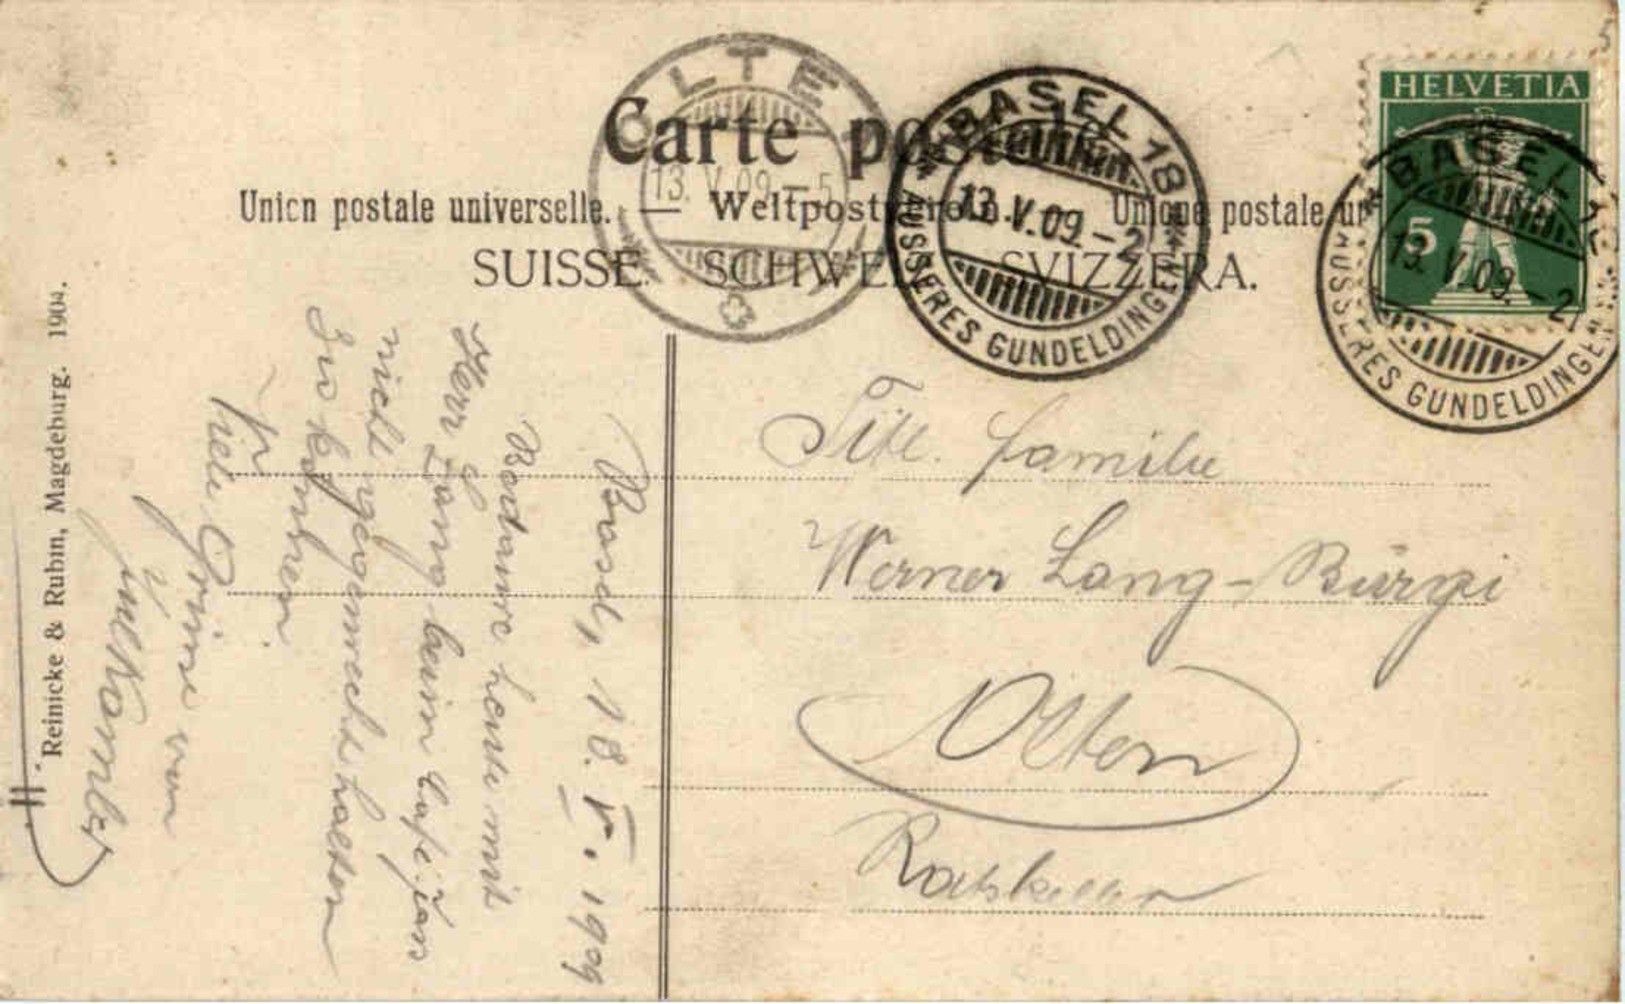 Carte postale
Union postale universelle. — Weltpostverein. — Unione postale un
SUISSE. SCHWEIZ. SVIZZERA.
OLTEN
13. V. 09.–5
BASEL 18
13. V. 09.–2
AUSSERES GUNDELDINGEN
HELVETIA
5
BASEL 18
13. V. 09.–2
AUSSERES GUNDELDINGEN
Titl. Familie
Werner Lang-Bürgi
Olten
Ratskeller
Basel, 18. V. 1909
Bedaure heute mit
Herr Lang beim Café. Jass
nicht
zu können.
Viele Grüsse von
Reinicke & Rubin, Magdeburg. 1904.